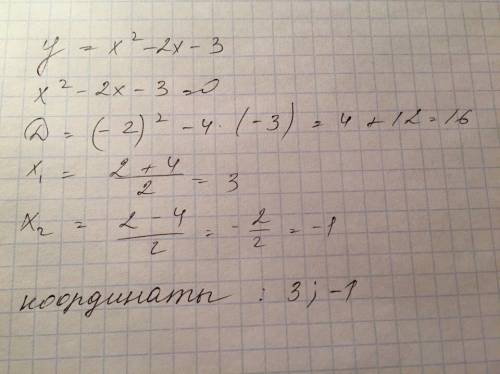 y = x² - 2x - 3
x² - 2x - 3 = 0
D = (-2)² - 4 · (-3) = 4 + 12 = 16
x₁ = (2 + 4)/2 = 3
x₂ = (2 - 4)/2 = -2/2 = -1
координаты : 3 ; -1